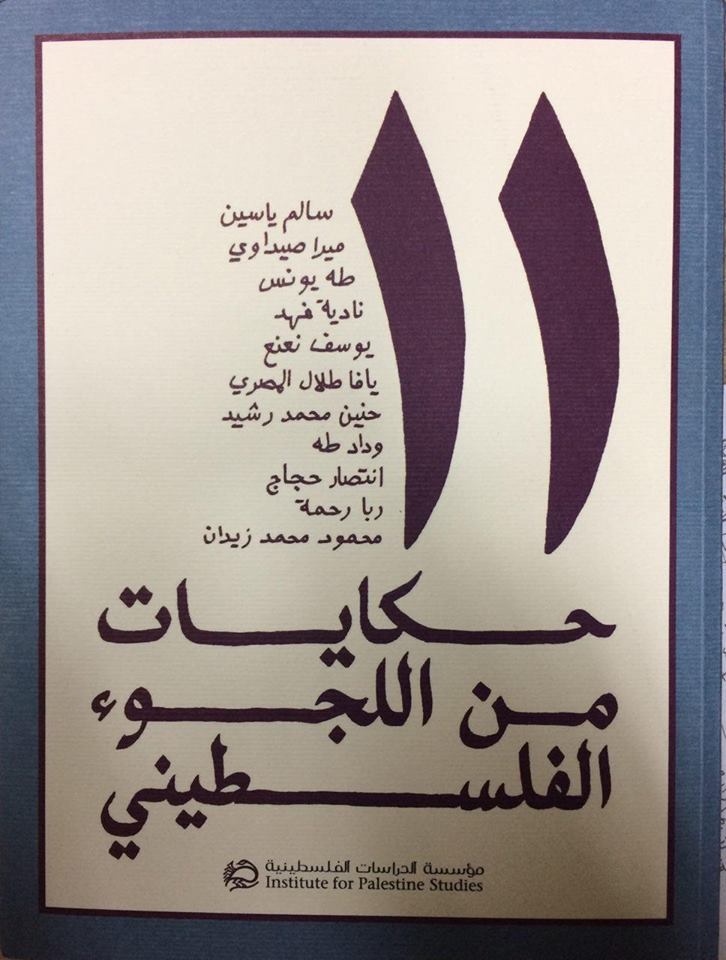 ١١
سالم ياسين
ميرا صيداوي
طه يونس
نادية فهد
يوسف نعنع
يافا طلال المصري
حنين محمد رشيد
وداد طه
انتصار حجاج
ربا رحمة
محمود محمد زيدان
حكايات
من اللجوء
الفلسطيني
مؤسسة الدراسات الفلسطينية
Institute for Palestine Studies